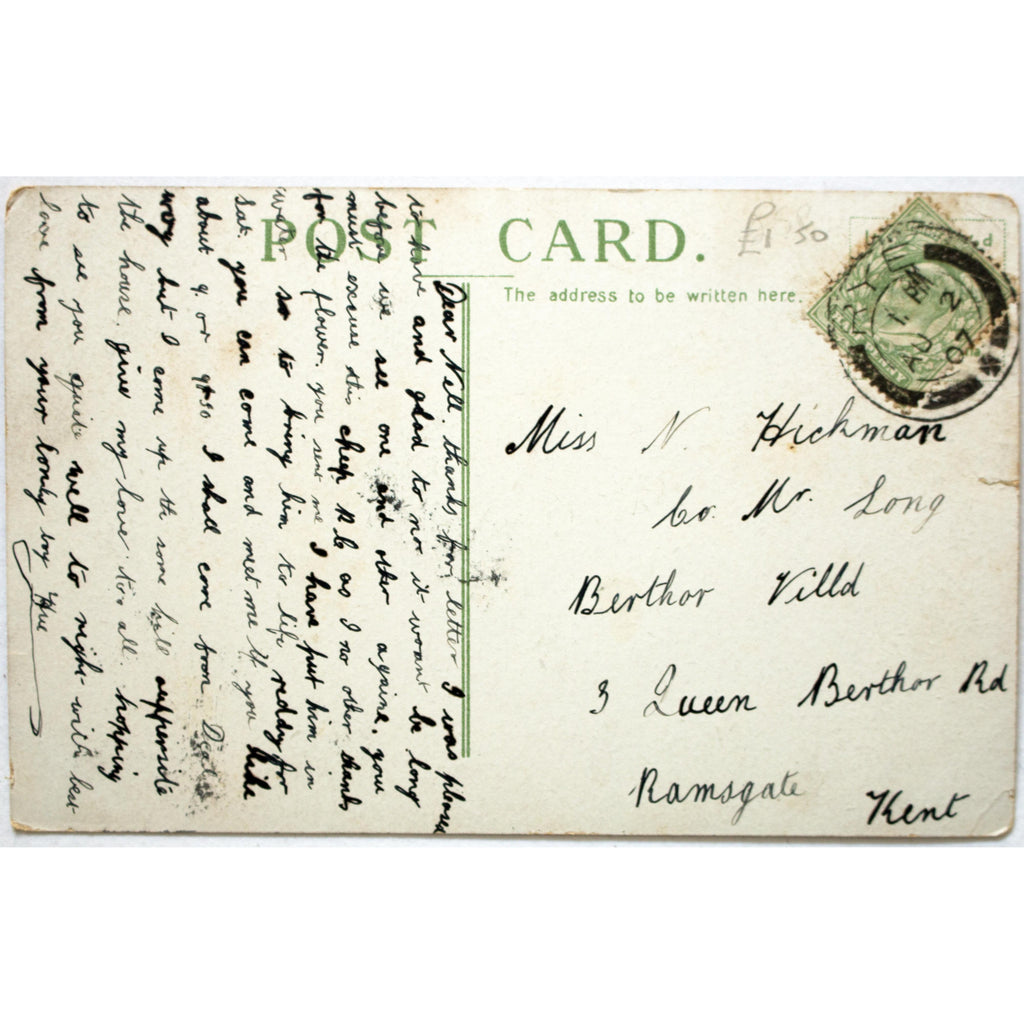 POST CARD.
£1.50
The address to be written here.
RYE
1 PM
AU 2
07
Miss N. Hickman
Co. Mr. Long
Berthor Villa
3 Queen Berthor Rd
Ramsgate
Kent
Dear Nell. thanks for letter I was pleased
to have and glad to no it woant be long
before we see one and other againe. you
must excuse this cheep P.C. as I no other thanks
for the flower. you sent me I have put him in
water so to bring him to life reddy for
Sat. you can come and meet me if you like
about 9. or 9.30 I shall come from Deal
way but I come up the same hill oppersite
the house. give my love to all. hopping
to see you quite well to night with best
love from your lonly boy